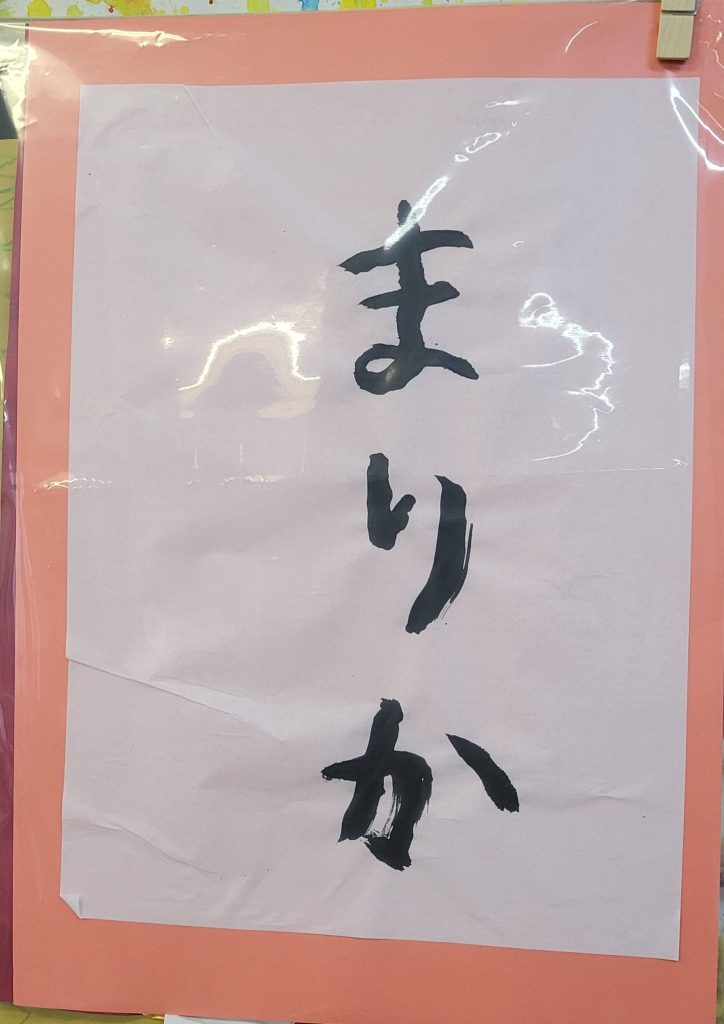 まりか